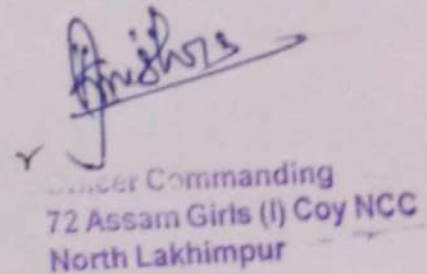 Officer Commanding
72 Assam Girls (I) Coy NCC
North Lakhimpur